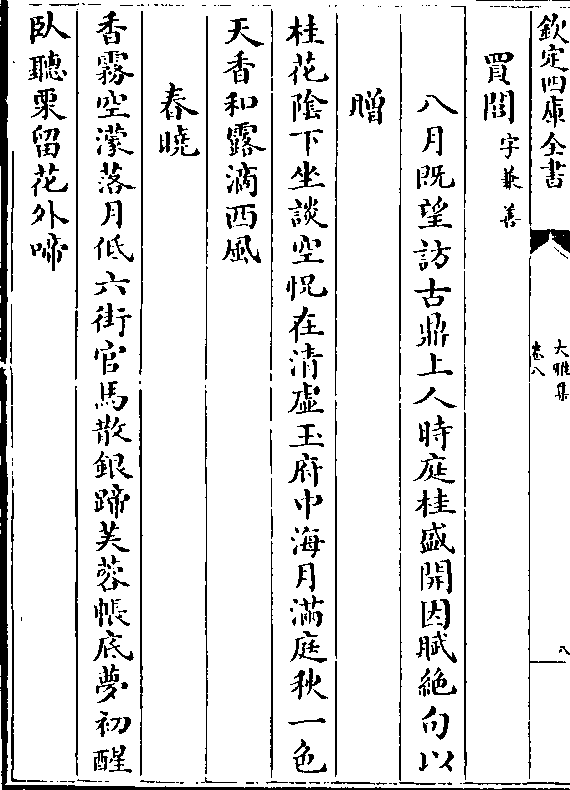 欽定四庫全書
大雅集
卷八
八
買閭字兼善
八月既望訪古鼎上人時庭桂盛開因賦絶句以
贈
桂花陰下坐談空怳在清虛玉府中海月滿庭秋一色
天香和露滴西風
春曉
香霧空濛落月低六街官馬散銀蹄芙蓉帳底夢初醒
臥聽栗留花外啼